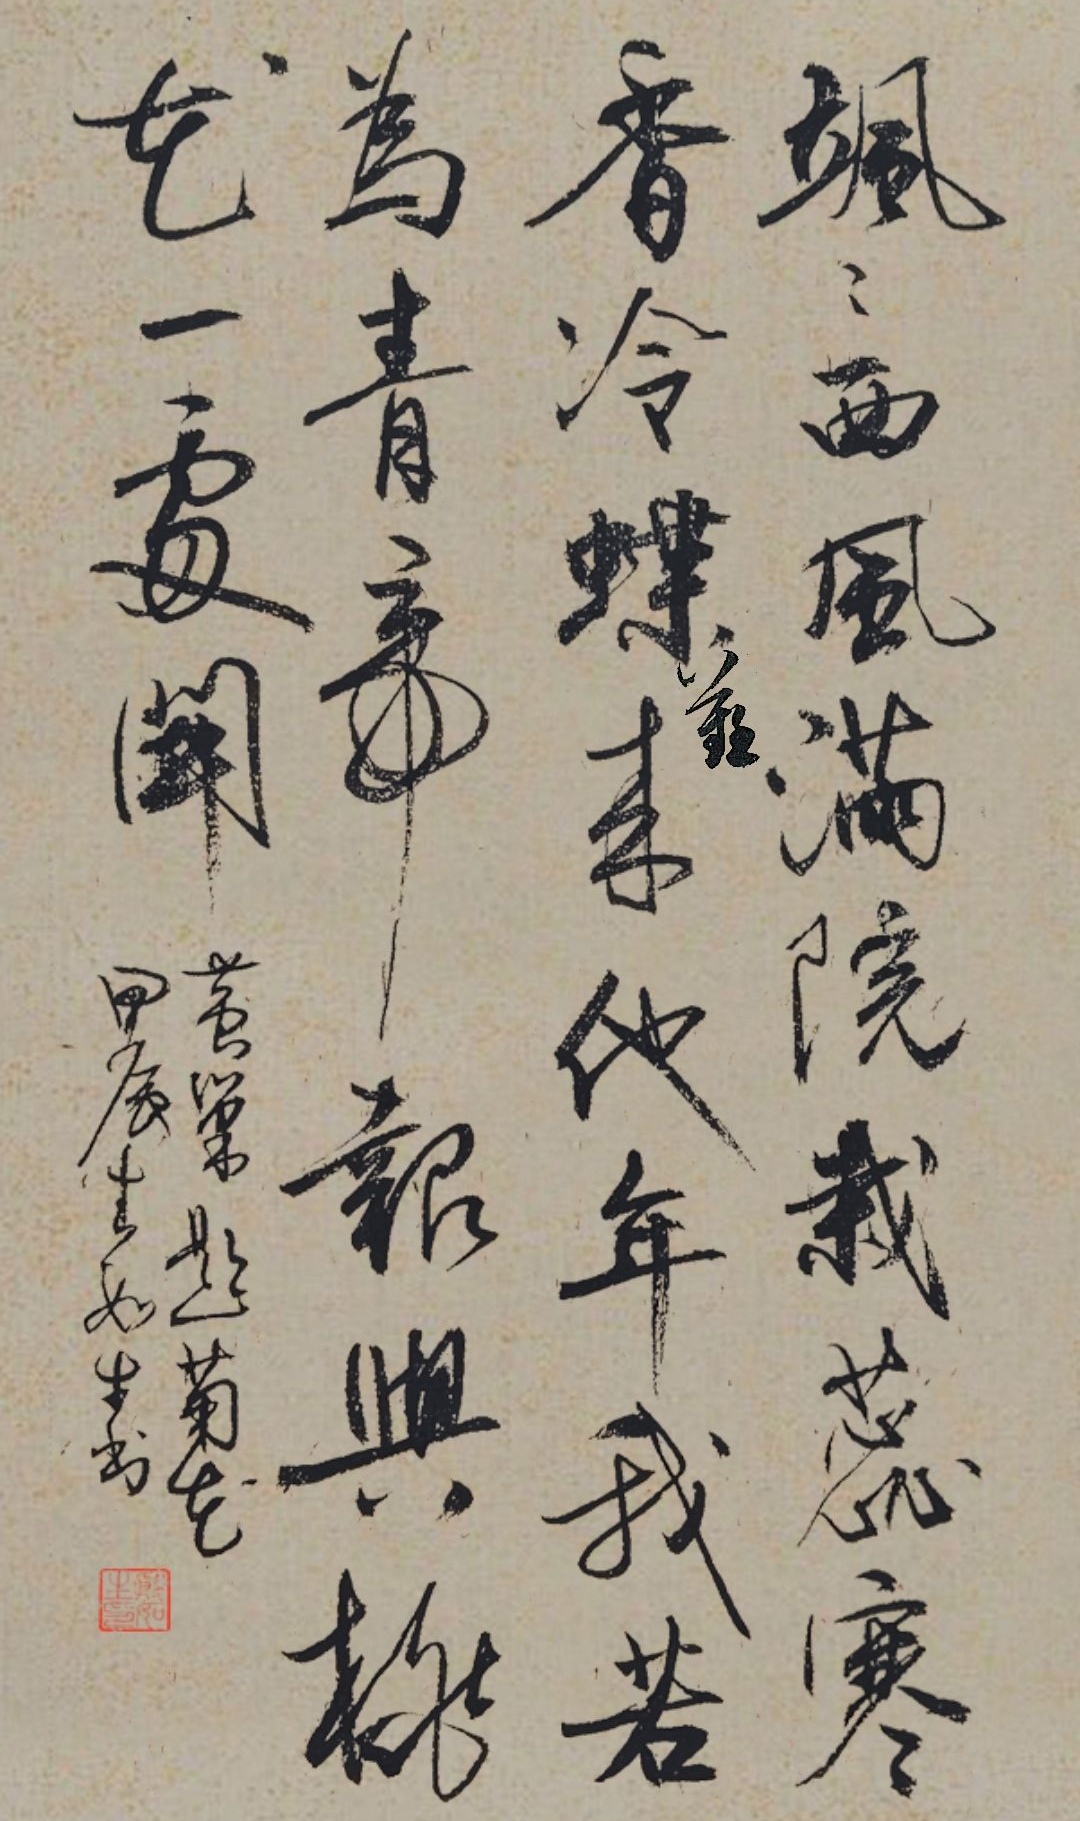 颯々西風滿院栽蕊寒
香冷蝶難来他年我若
為青帝報與桃
花一處開
黄巢題菊花
甲辰春如生书